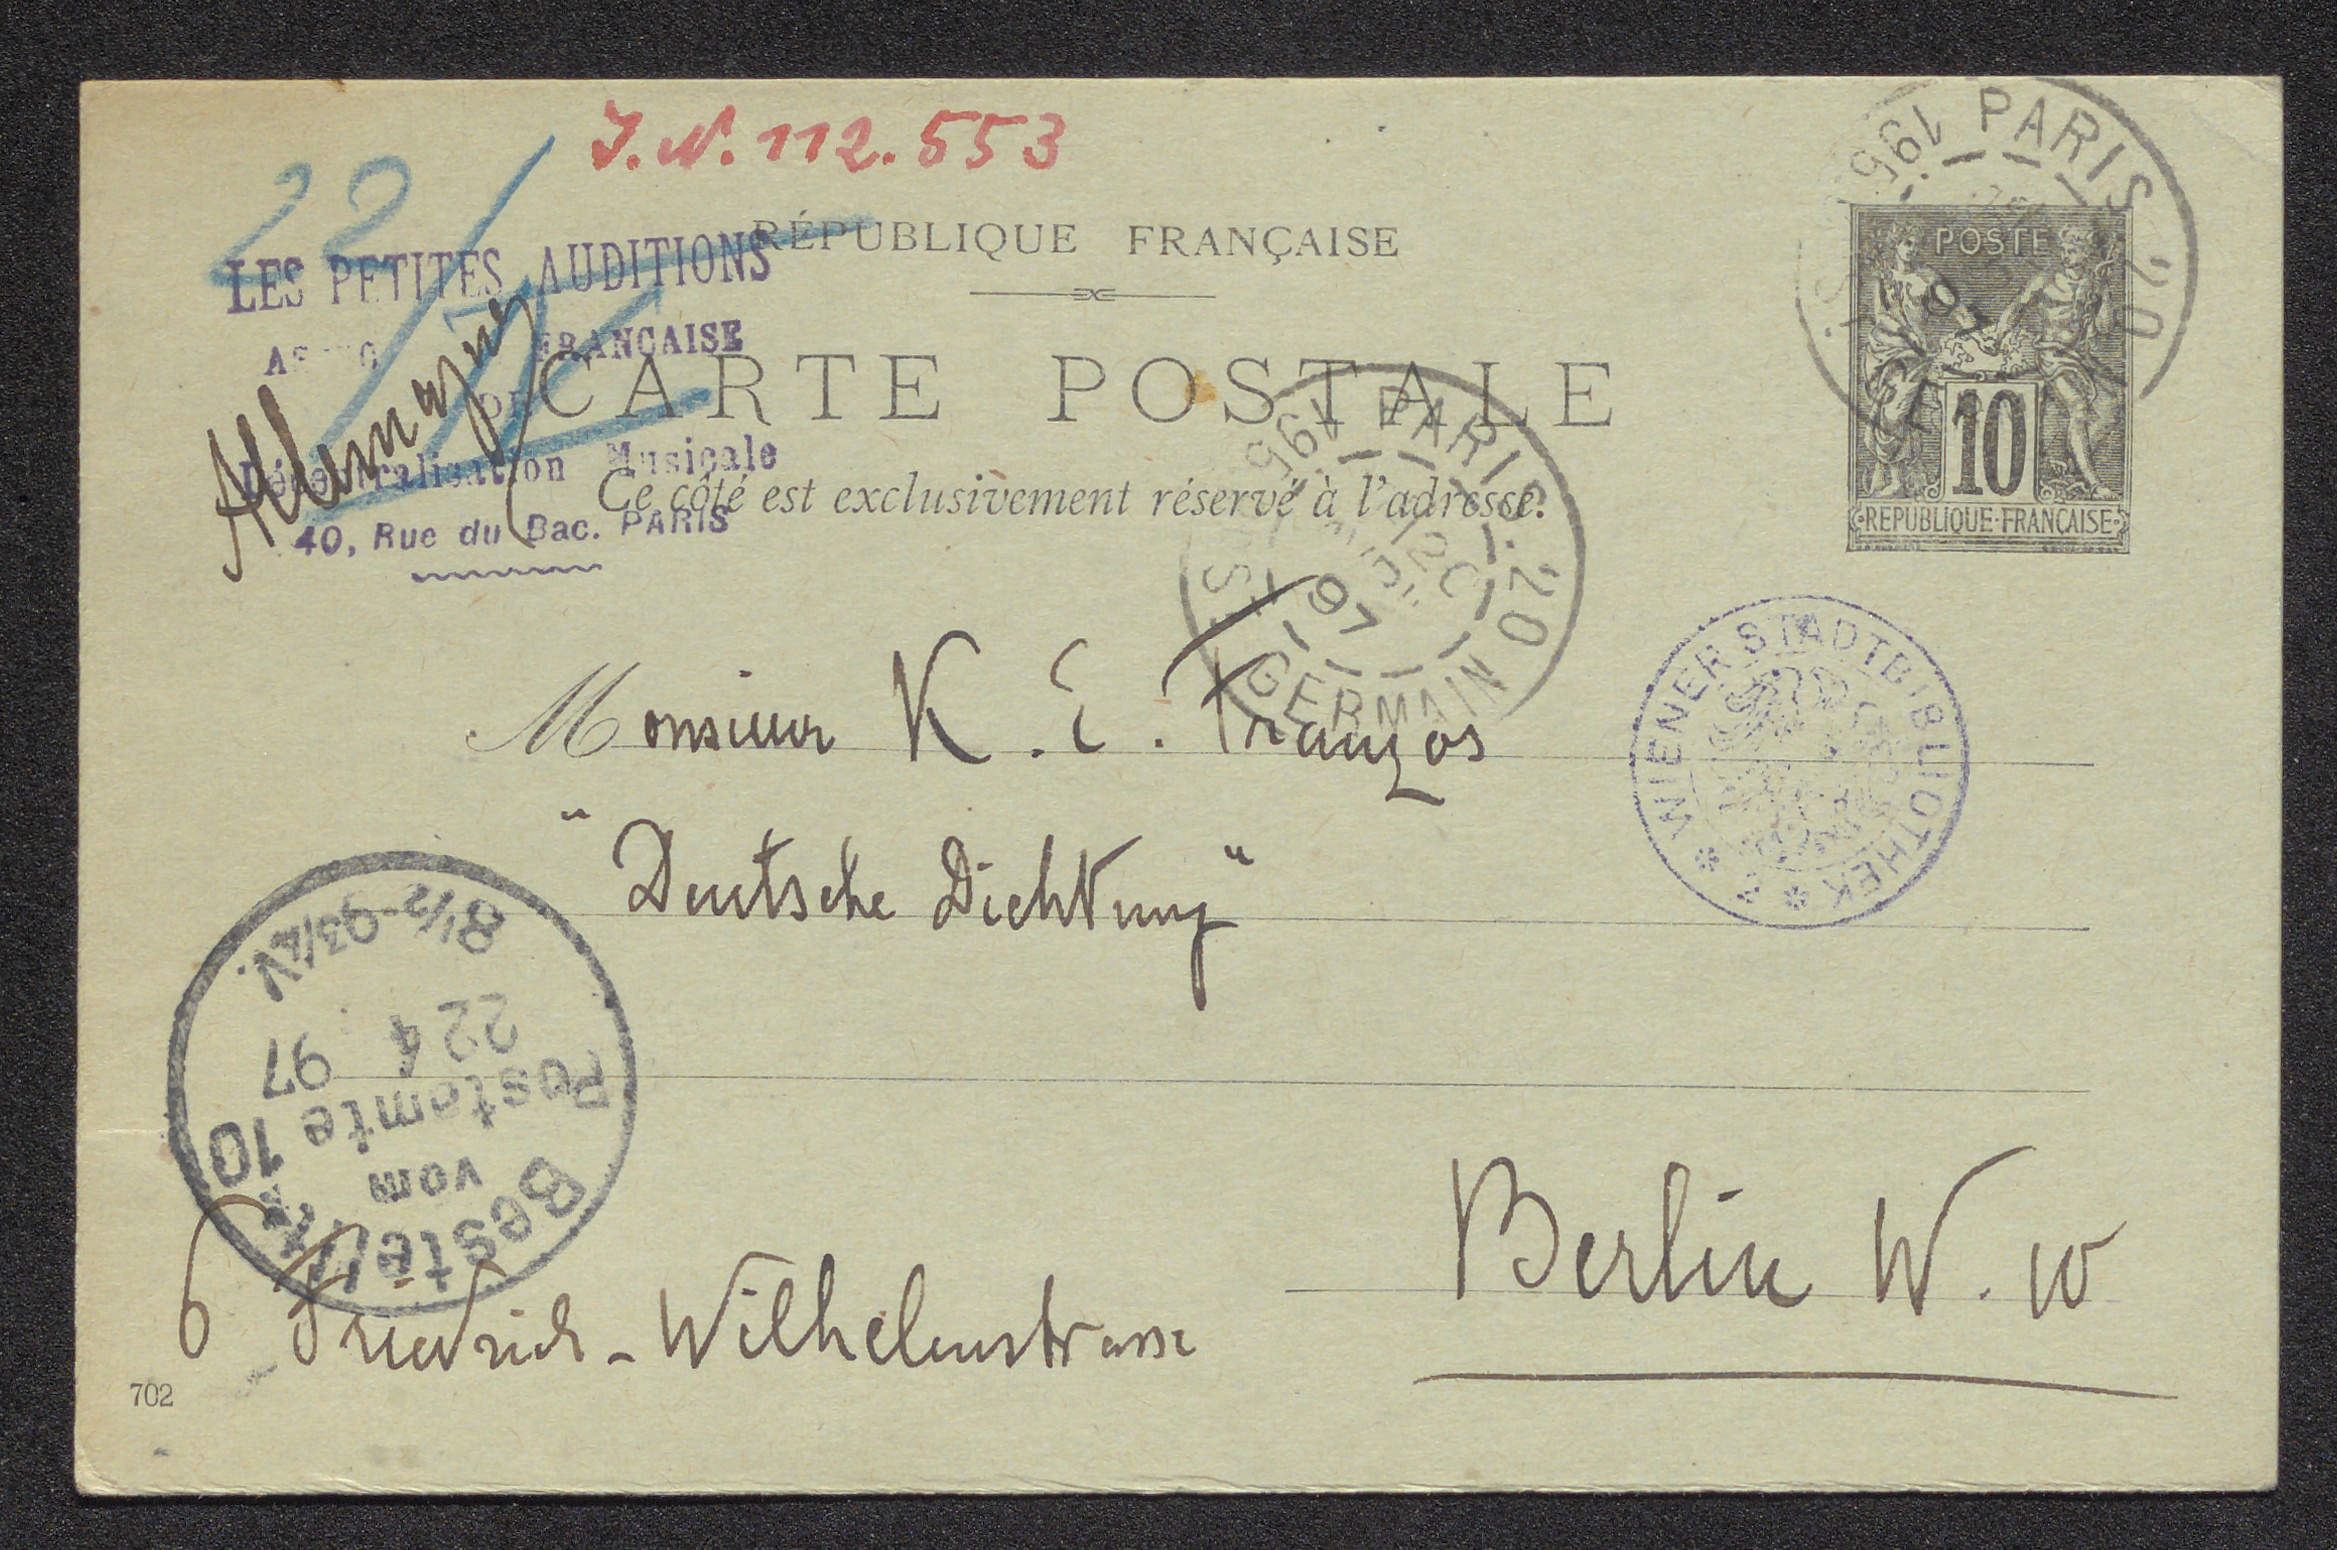 J.N. 112.553
22/
RÉPUBLIQUE FRANÇAISE
LES PETITES AUDITIONS
FRANCAISE
DE
Décentralisation Musicale
40, Rue du Bac. PARIS
Allemagne
CARTE POSTALE
Ce côté est exclusivement réservé à l'adresse.
PARIS 20
POSTE
10
REPUBLIQUE FRANÇAISE
PARIS 20
97
GERMAIN
WIENER STADTBIBLIOTHEK
Monsieur K. E. Franzos
"Deutsche Dichtung"
Berlin W. 10
6 Friedrich-Wilhelmstrasse
Bestellt
vom
Postamte 10
22 4 97
8½-9¾V.
702